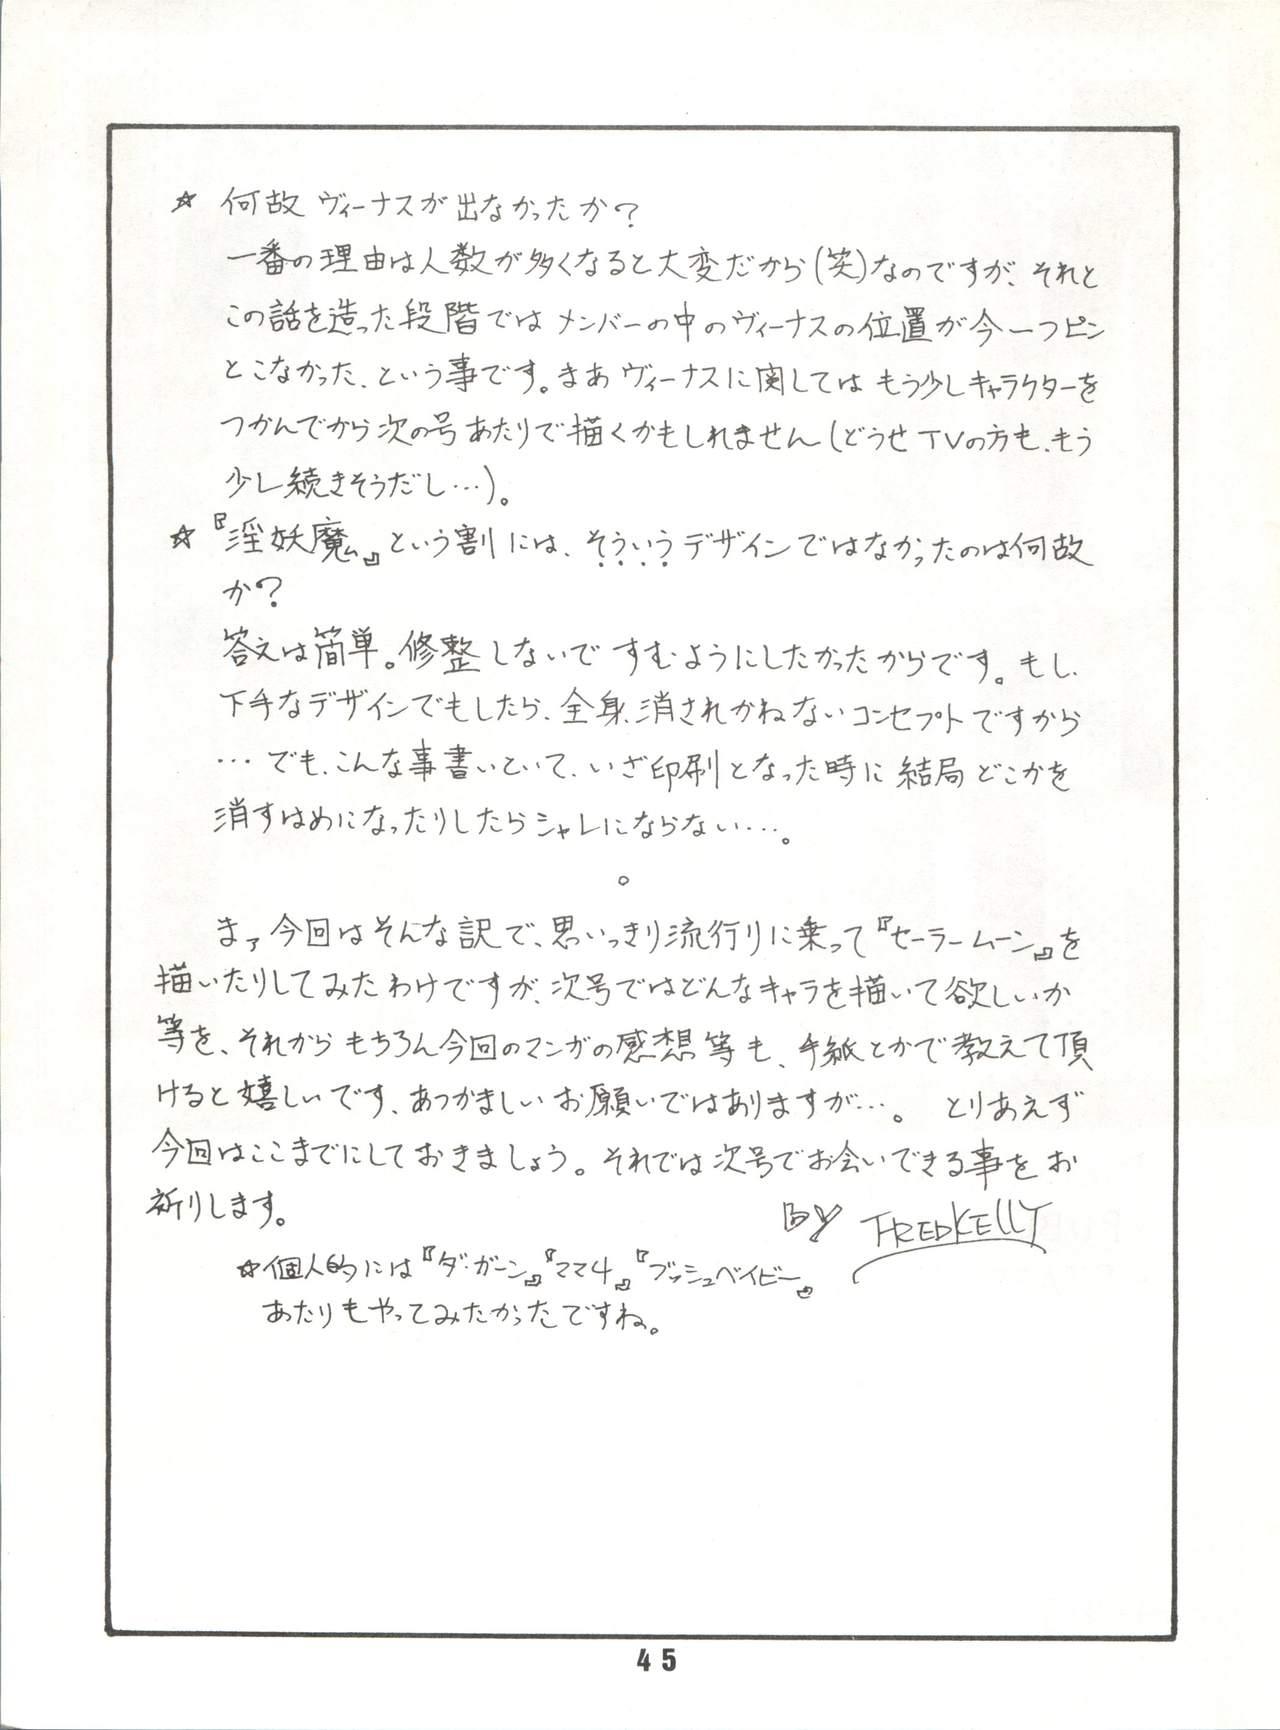 ☆ 何故 ヴィーナスが出なかったか?
一番の理由は人数が多くなると大変だから(笑)なのですが、それと
この話を造った段階ではメンバーの中のヴィーナスの位置が今一つピン
とこなかった、という事です。まあヴィーナスに関してはもう少しキャラクターを
つかんでから次の号あたりで描くかもしれません(どうせTVの方も、もう
少し続きそうだし…)。
☆『淫妖魔』という割には、そういうデザインではなかったのは何故
か?
答えは簡単。修整しないですむようにしたかったからです。もし、
下手なデザインでもしたら、全身消されかねないコンセプトですから
…でも、こんな事書いといて、いざ印刷となった時に結局どこかを
消すはめになったりしたらシャレにならない…。
。
まァ今回はそんな訳で、思いっきり流行りに乗って『セーラームーン』を
描いたりしてみたわけですが、次号ではどんなキャラを描いて欲しいか
等を、それからもちろん今回のマンガの感想等も、手紙とかで教えて頂
けると嬉しいです、あつかましいお願いではありますが…。 とりあえず
今回はここまでにしておきましょう。それでは次号でお会いできる事をお
祈りします。
BY FREDKELLY
☆個人的には『ダ・ガーン』『ママ4』『ブッシュベイビー』
あたりもやってみたかったですね。
45